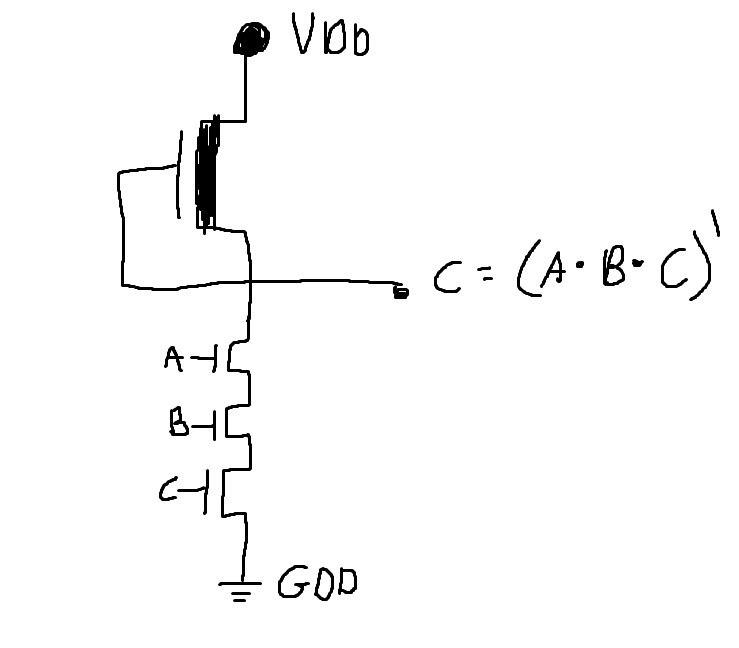 VDD
C = (A · B · C)'
A
B
C
GDD